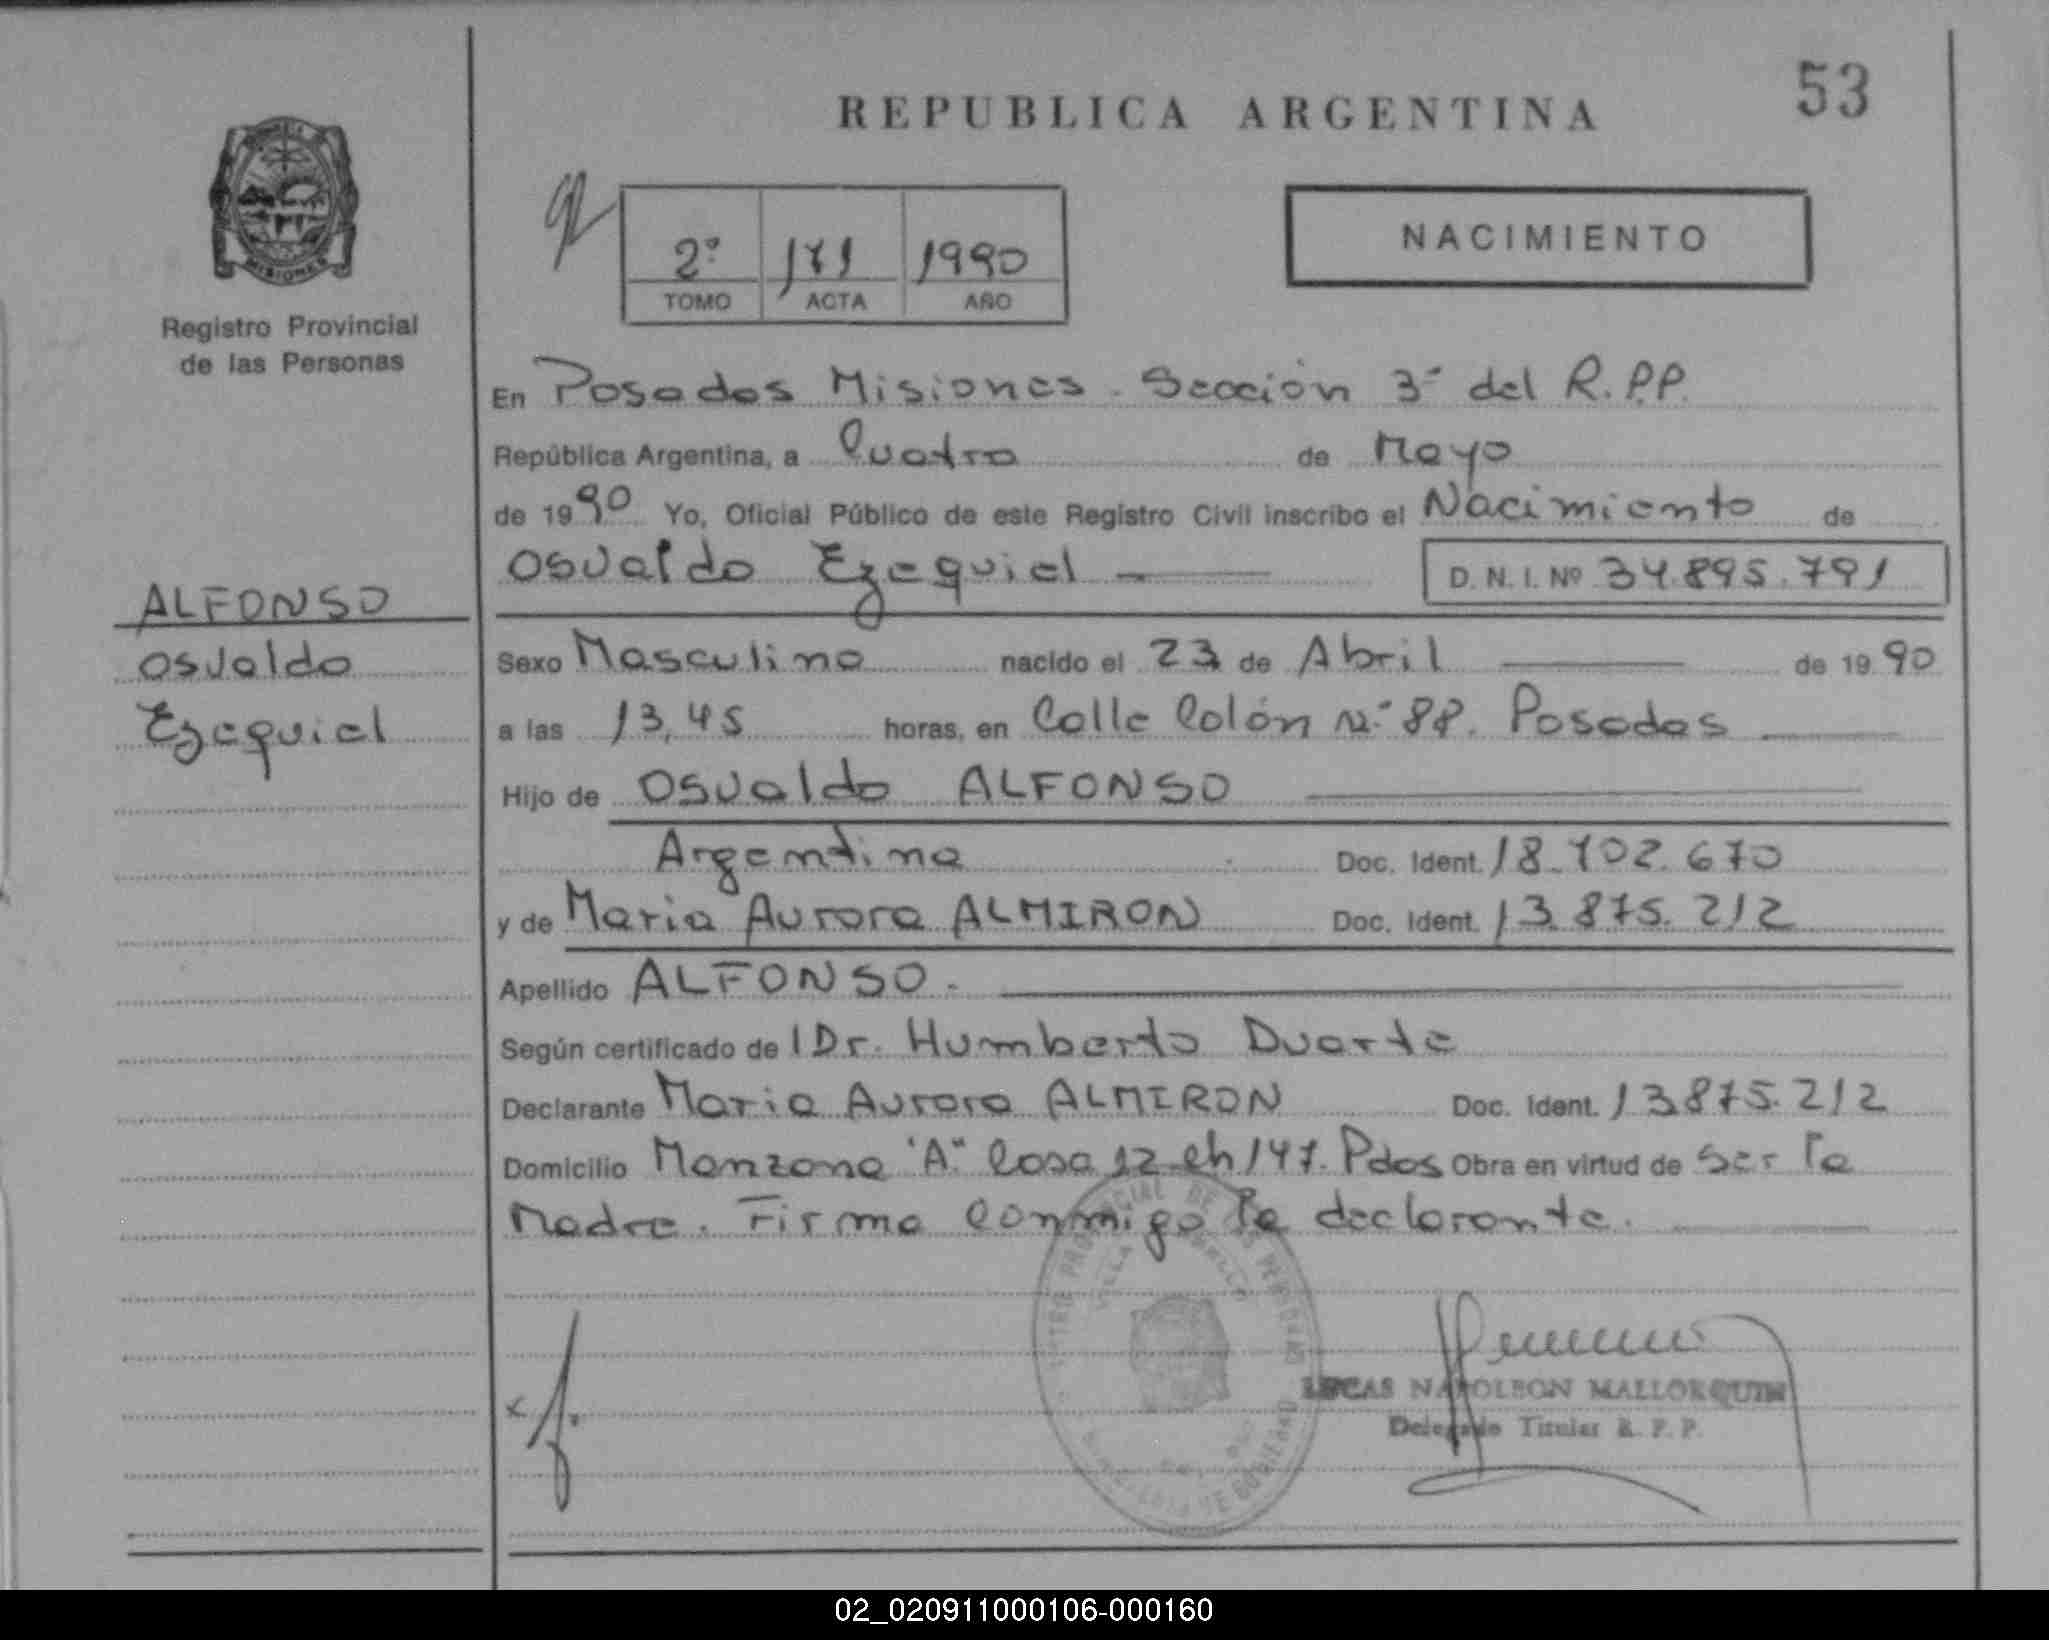 53
REPUBLICA ARGENTINA
NACIMIENTO
2º 171 1990
TOMO ACTA AÑO
MISIONES
Registro Provincial
de las Personas
En Posadas Misiones. Sección 3ª del R.P.P.
República Argentina, a Cuatro de Mayo
de 1990 Yo, Oficial Público de este Registro Civil inscribo el Nacimiento de
Osvaldo Ezequiel D.N.I. Nº 34.895.791
ALFONSO
Osvaldo
Ezequiel
Sexo Masculino nacido el 23 de Abril de 1990
a las 13,45 horas, en Calle Colón Nº 88. Posadas
Hijo de Osvaldo ALFONSO
Argentina Doc. Ident. 18.702.670
y de Maria Aurora ALMIRON Doc. Ident. 13.875.212
Apellido ALFONSO.
Según certificado de l Dr. Humberto Duarte
Declarante Maria Aurora ALMIRON Doc. Ident. 13.875.212
Domicilio Manzana "A" Casa 12 Ch 147. Pdas Obra en virtud de Ser la
Madre. Firma Conmigo la declarante.
LUCAS NAPOLEON MALLORQUIN
Delegado Titular R. P. P.
02_020911000106-000160